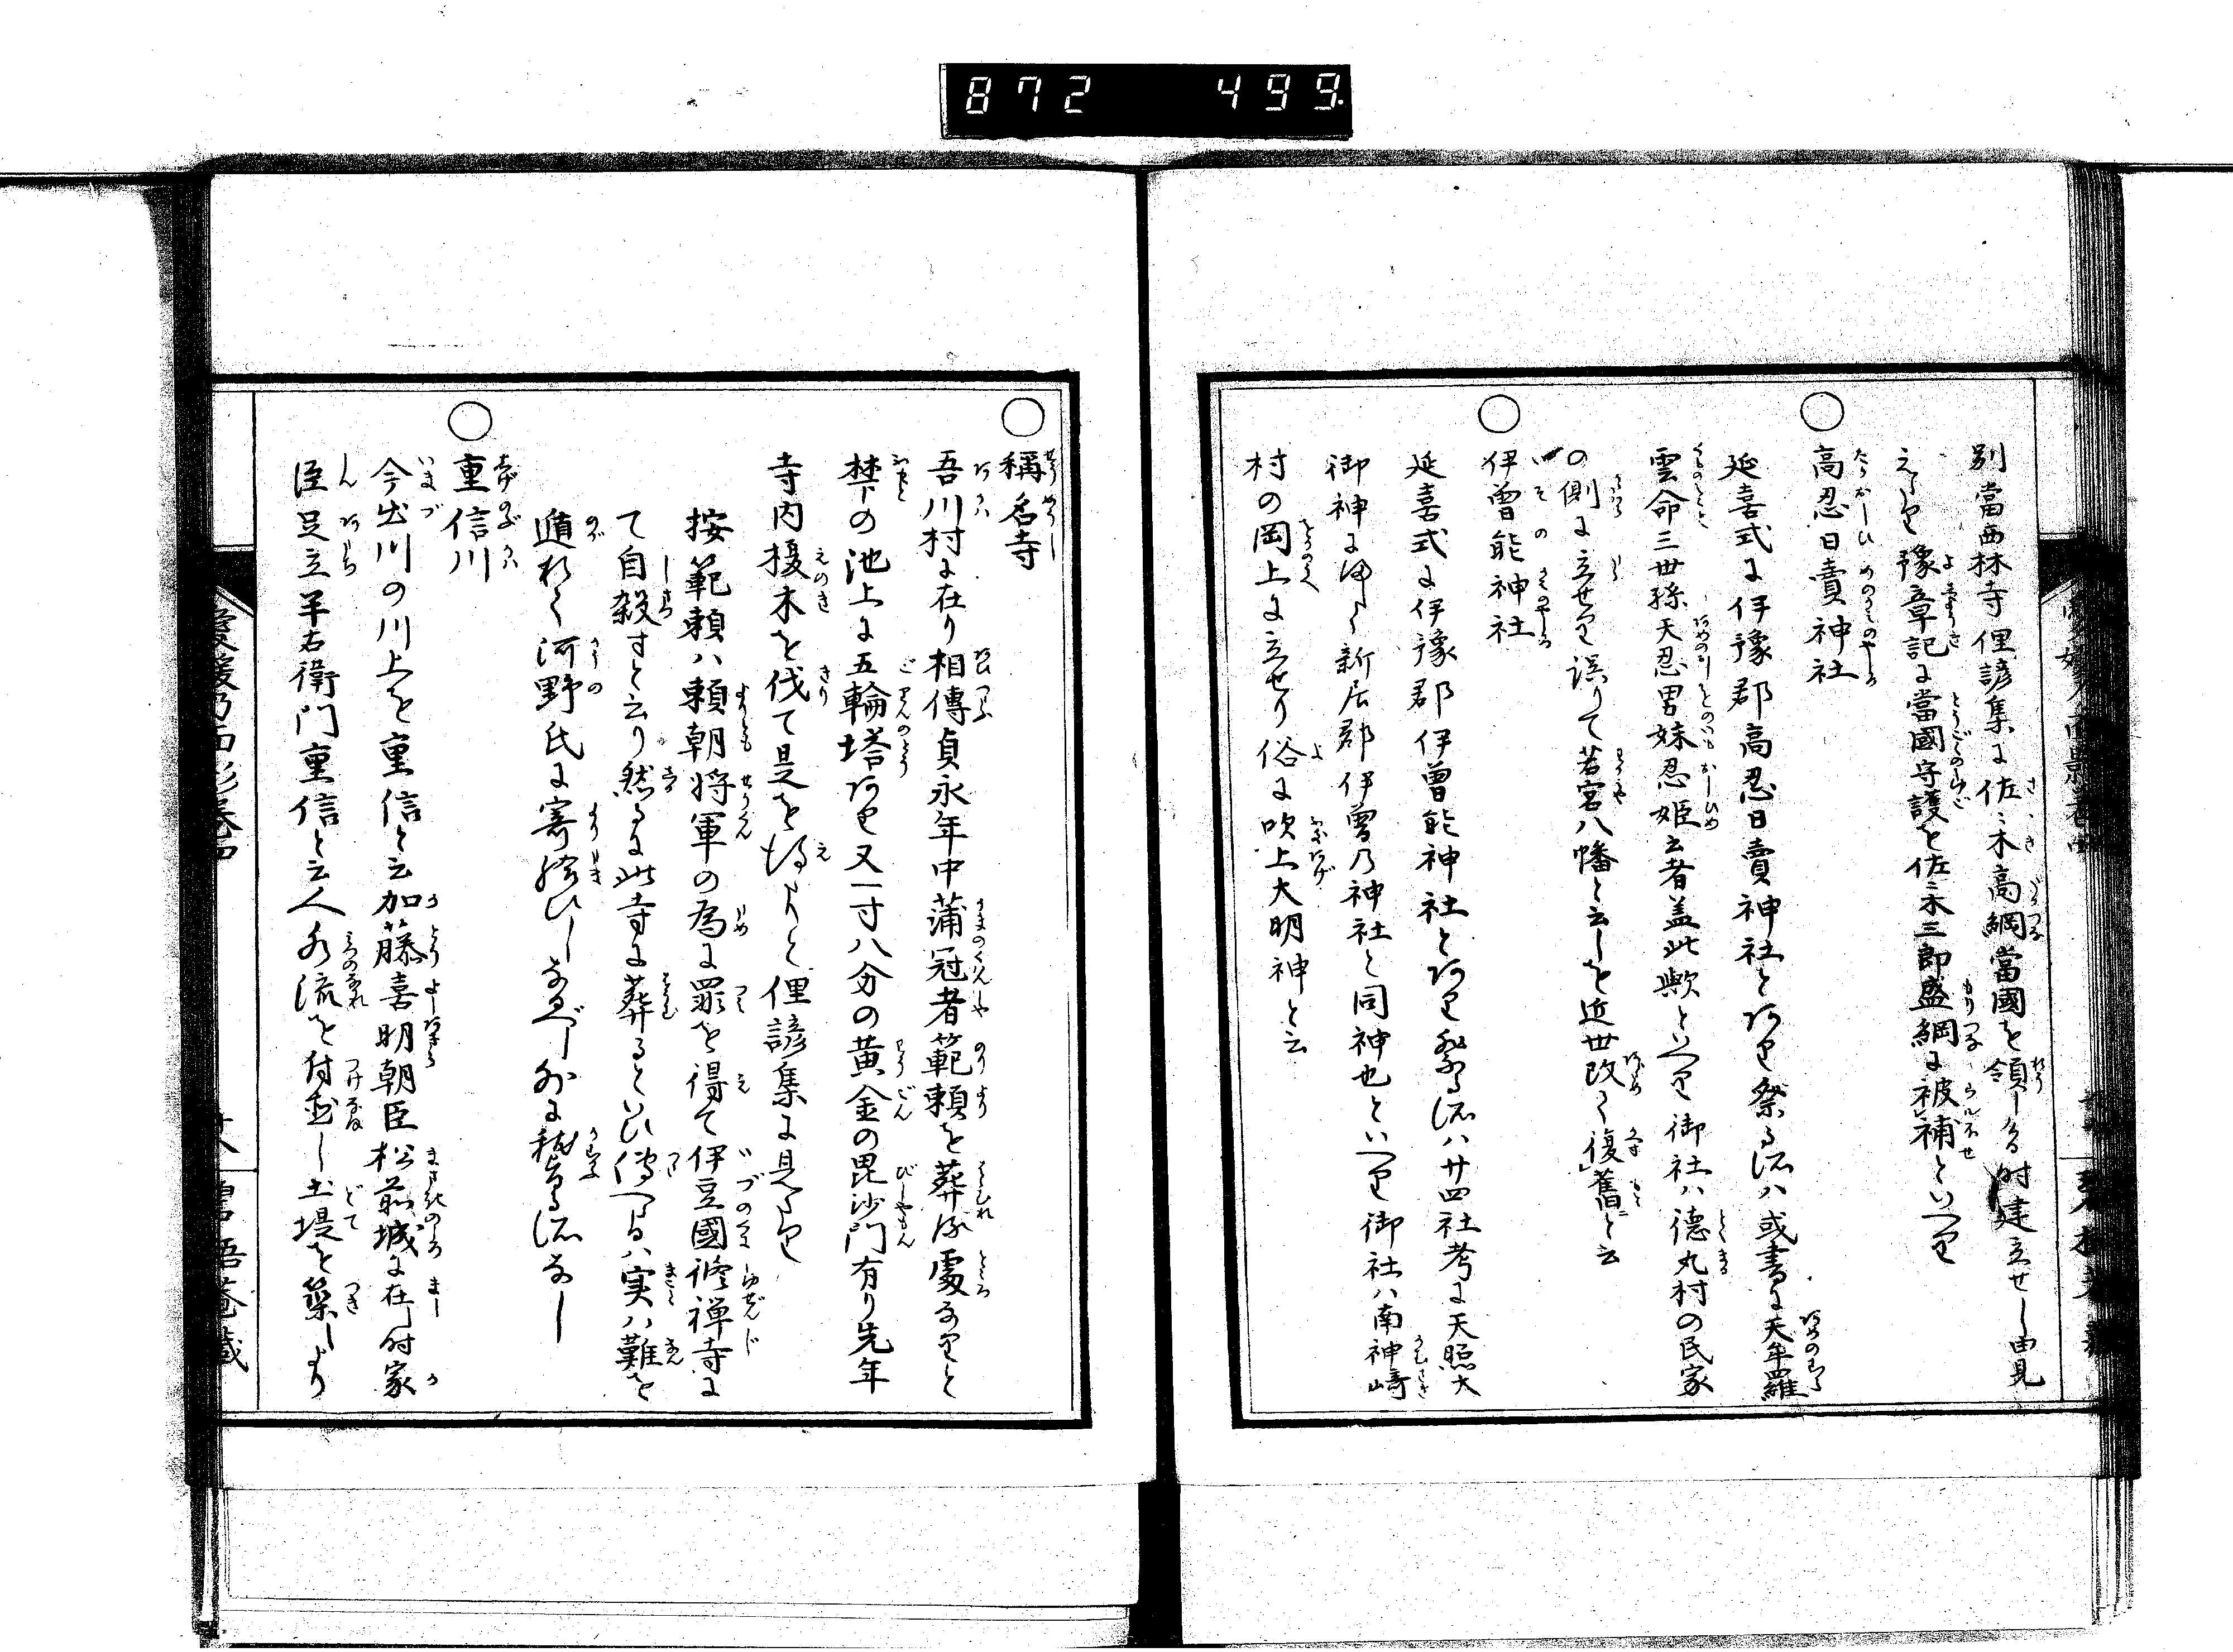 872 499
別當西林寺俚諺集に佐々木高綱當國を領しける時建立せし由見
えたり豫章記に當國守護を佐々木三郎盛綱に被補といへり
○高忍日賣神社
延喜式に伊豫郡高忍日賣神社とあり祭る所ハ或書に天牟羅
雲命三世孫天忍男妹忍姫云者盖此歟といへり御社ハ徳丸村の民家
の側に立せり誤りて若宮八幡と云しを近世改て復舊と云
○伊曽能神社
延喜式に伊豫郡伊曽能神社とあり祭る所ハ廿四社考に天照大
御神にまして新居郡伊曽乃神社と同神也といへり御社ハ南神崎
村の岡上に立せり俗に吹上大明神と云
○稱名寺
吾川村に在り相傳貞永年中蒲冠者範頼を葬りし處なりと
梺の池上に五輪塔あり又一寸八分の黄金の毘沙門有り先年
寺内榎木を伐て是を得たりと俚諺集に見えたり
按範頼ハ頼朝将軍の為に罪を得て伊豆國修禅寺に
て自殺すと云り然るに此寺に葬るといひ傳へるハ実ハ難を
遁れて河野氏に寄給ひしなるべし外に稽る所なし
○重信川
今出川の川上を重信と云加藤喜明朝臣松前城に在し時家
臣足立半右衛門重信と云人水流を付直し土堤を築しより
愛媛乃面影巻四